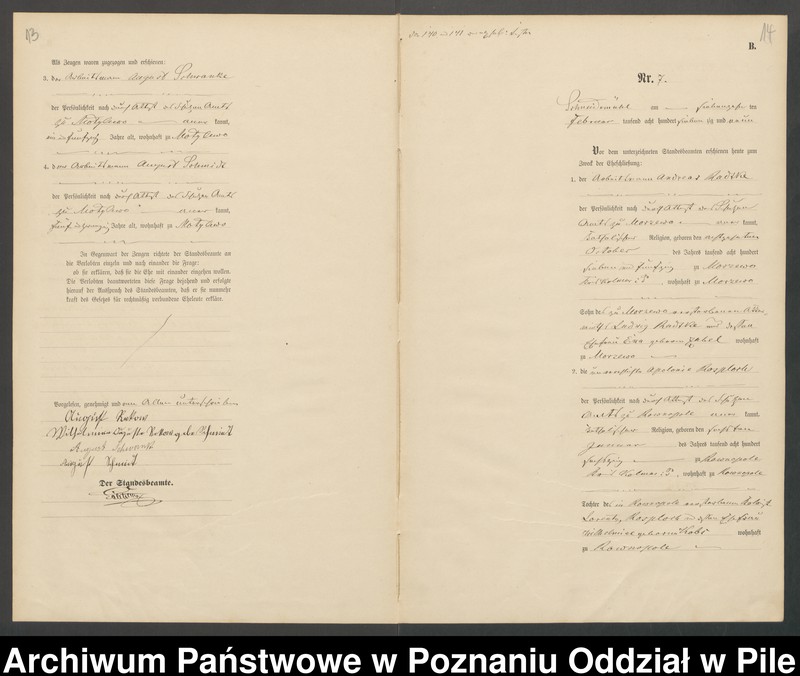 13
Als Zeugen waren zugezogen und erschienen:
3. der Arbeitsmann August Schwanke
der Persönlichkeit nach durch Attest des Schulzen Amts
zu Motylewo anerkannt,
Jahre alt, wohnhaft zu Motylewo
4. der Arbeitsmann August Schmidt
der Persönlichkeit nach durch Attest des Schulzen Amts
zu Motylewo anerkannt,
Jahre alt, wohnhaft zu Motylewo
In Gegenwart der Zeugen richtete der Standesbeamte an
die Verlobten einzeln und nach einander die Frage:
ob sie erklären, daß sie die Ehe mit einander eingehen wollen.
Die Verlobten beantworteten diese Frage bejahend und erfolgte
hierauf der Ausspruch des Standesbeamten, daß er sie nunmehr
kraft des Gesetzes für rechtmäßig verbundene Eheleute erkläre.
Vorgelesen, genehmigt und von Allen unterschrieben
August Rekow
Wilhelmine Auguste Rekow geb. Schmidt
August Schwanke
August Schmidt
Der Standesbeamte.
14
B.
Nr. 7.
Schneidemühl am siebenzehnten
Februar tausend acht hundert sieben zig und neun
Vor dem unterzeichneten Standesbeamten erschienen heute zum
Zweck der Eheschließung:
1. der Arbeitsmann Andreas Radtke
der Persönlichkeit nach durch Attest des Schulzen
Amts zu Morzewo anerkannt,
katholischer Religion, geboren den
October des Jahres tausend acht hundert
sieben und fünfzig zu Morzewo
Kreis Kolmar i. P., wohnhaft zu Morzewo
Sohn des zu Morzewo verstorbenen
Ludwig Radtke und dessen
Ehefrau Eva geborenen Zabel wohnhaft
zu Morzewo
2. die unverehelichte Apolonie Rosploch
der Persönlichkeit nach durch Attest des Schulzen
Amts zu Rownopole anerkannt,
katholischer Religion, geboren den sechsten
Januar des Jahres tausend acht hundert
sechszig zu Rownopole
Kreis Kolmar i. P., wohnhaft zu Rownopole
Tochter des in Rownopole verstorbenen
Rosploch und dessen Ehefrau
Wilhelmine geborenen wohnhaft
zu Rownopole
Archiwum Państwowe w Poznaniu Oddział w Pile